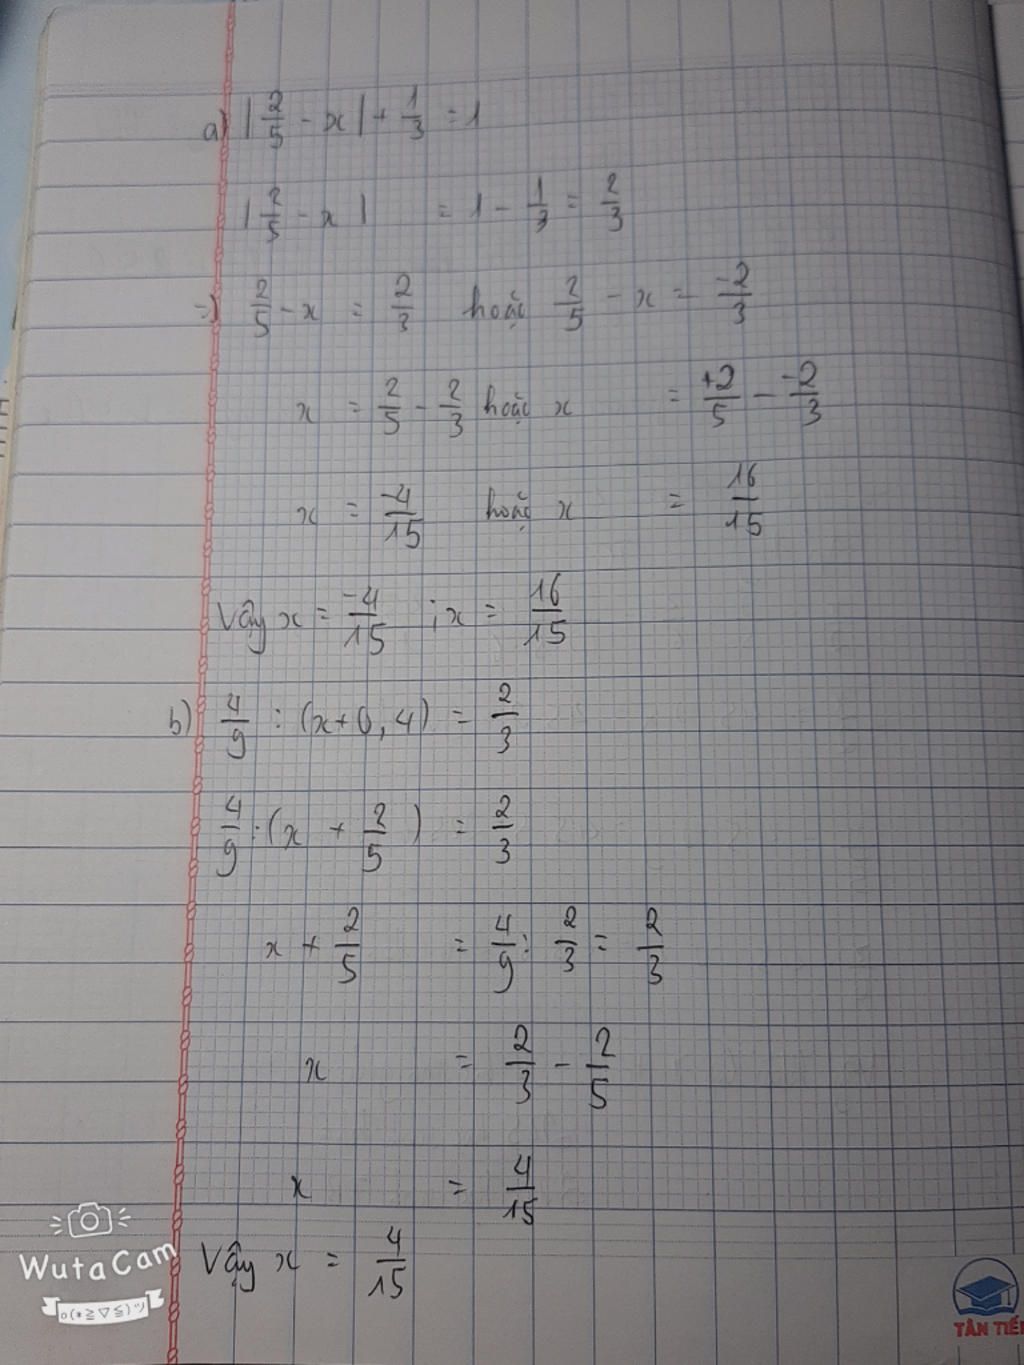 a) |2/5 - x| + 1/3 = 1
|2/5 - x| = 1 - 1/3 = 2/3
=> 2/5 - x = 2/3 hoặc 2/5 - x = -2/3
x = 2/5 - 2/3 hoặc x = +2/5 - -2/3
x = -4/15 hoặc x = 16/15
Vậy x = -4/15 ; x = 16/15
b) 4/9 : (x + 0,4) = 2/3
4/9 : (x + 2/5) = 2/3
x + 2/5 = 4/9 : 2/3 = 2/3
x = 2/3 - 2/5
x = 4/15
Vậy x = 4/15
WutaCam
TÂN TIẾ